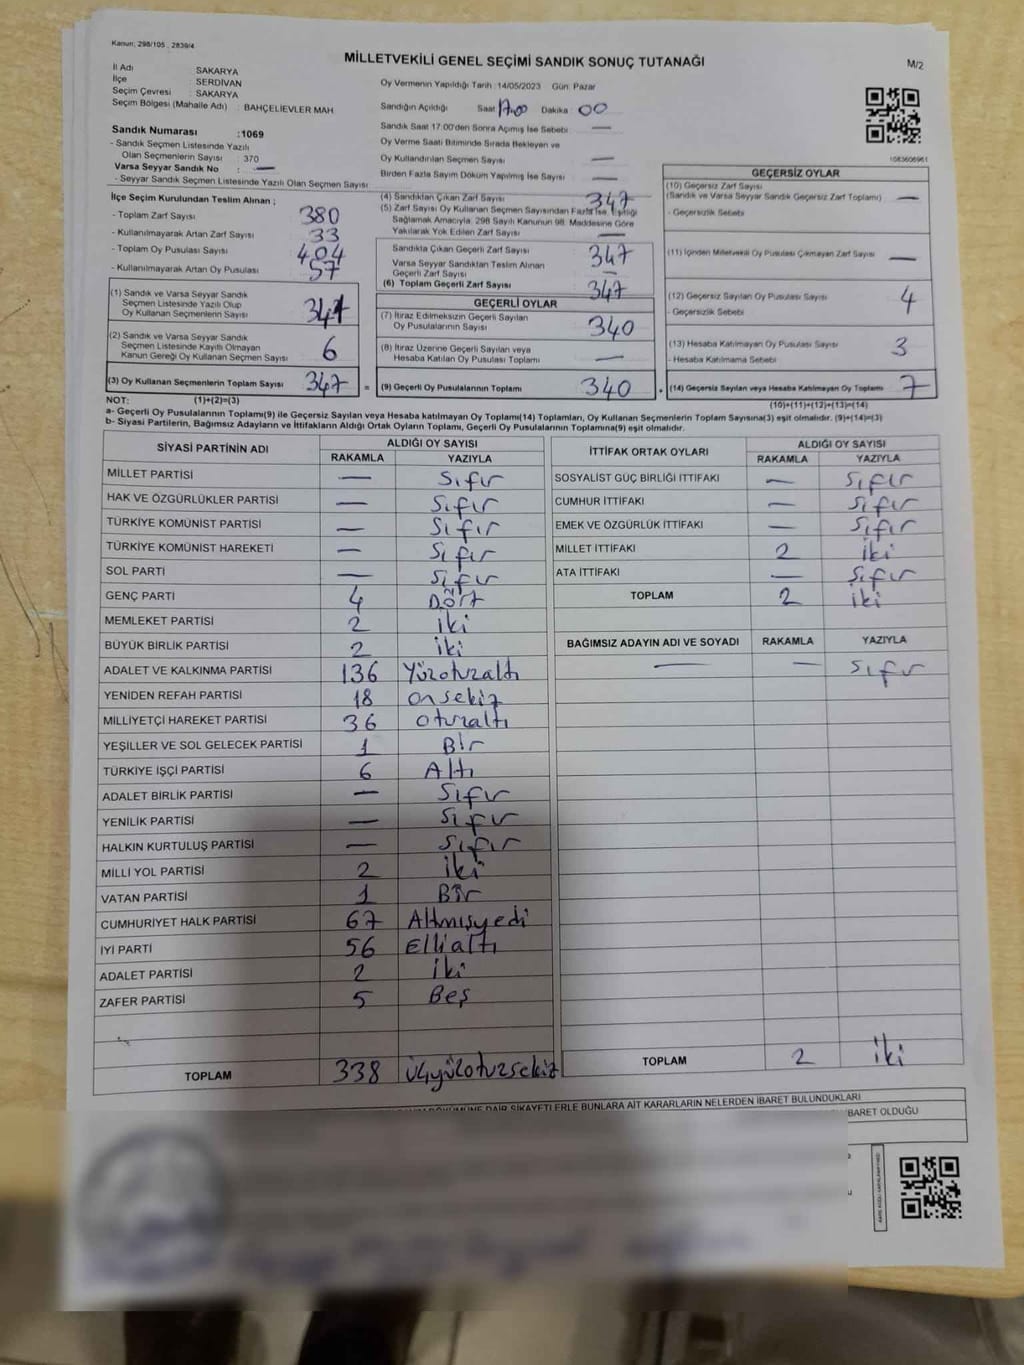 Kanun: 298/105 , 2839/4
MİLLETVEKİLİ GENEL SEÇİMİ SANDIK SONUÇ TUTANAĞI
M/2
İl Adı : SAKARYA
İlçe : SERDİVAN
Seçim Çevresi : SAKARYA
Seçim Bölgesi (Mahalle Adı) : BAHÇELİEVLER MAH
Oy Vermenin Yapıldığı Tarih :14/05/2023 Gün: Pazar
Sandığın Açıldığı Saat: 17.00 Dakika: 00
Sandık Saat 17:00'den Sonra Açılmış İse Sebebi : —
Oy Verme Saati Bitiminde Sırada Bekleyen ve
Oy Kullandırılan Seçmen Sayısı : —
Birden Fazla Sayım Döküm Yapılmış İse Sayısı : —
Sandık Numarası :1069
- Sandık Seçmen Listesinde Yazılı
Olan Seçmenlerin Sayısı : 370
Varsa Seyyar Sandık No : —
- Seyyar Sandık Seçmen Listesinde Yazılı Olan Seçmen Sayısı :
1083608961
İlçe Seçim Kurulundan Teslim Alınan ;
- Toplam Zarf Sayısı : 380
- Kullanılmayarak Artan Zarf Sayısı : 33
- Toplam Oy Pusulası Sayısı : 404
- Kullanılmayarak Artan Oy Pusulası : 57
(1) Sandık ve Varsa Seyyar Sandık
Seçmen Listesinde Yazılı Olup
Oy Kullanan Seçmenlerin Sayısı :
(2) Sandık ve Varsa Seyyar Sandık
Seçmen Listesinde Kayıtlı Olmayan
Kanun Gereği Oy Kullanan Seçmen Sayısı : 6
(3) Oy Kullanan Seçmenlerin Toplam Sayısı : 347
(4) Sandıktan Çıkan Zarf Sayısı : 347
(5) Zarf Sayısı Oy Kullanan Seçmen Sayısından Fazla İse, Eşitliği
Sağlamak Amacıyla, 298 Sayılı Kanunun 98. Maddesine Göre
Yakılarak Yok Edilen Zarf Sayısı : —
Sandıkta Çıkan Geçerli Zarf Sayısı : 347
Varsa Seyyar Sandıktan Teslim Alınan
Geçerli Zarf Sayısı : —
(6) Toplam Geçerli Zarf Sayısı : 347
GEÇERLİ OYLAR
(7) İtiraz Edilmeksizin Geçerli Sayılan
Oy Pusulalarının Sayısı : 340
(8) İtiraz Üzerine Geçerli Sayılan veya
Hesaba Katılan Oy Pusulası Toplamı : —
= (9) Geçerli Oy Pusulalarının Toplamı : 340
GEÇERSİZ OYLAR
(10) Geçersiz Zarf Sayısı
(Sandık ve Varsa Seyyar Sandık Geçersiz Zarf Toplamı) : —
- Geçersizlik Sebebi :
(11) İçinden Milletvekili Oy Pusulası Çıkmayan Zarf Sayısı : —
(12) Geçersiz Sayılan Oy Pusulası Sayısı : 4
- Geçersizlik Sebebi :
(13) Hesaba Katılmayan Oy Pusulası Sayısı : 3
- Hesaba Katılmama Sebebi :
+ (14) Geçersiz Sayılan veya Hesaba Katılmayan Oy Toplamı : 7
NOT: (1)+(2)=(3) (10)+(11)+(12)+(13)=(14)
a- Geçerli Oy Pusulalarının Toplamı(9) ile Geçersiz Sayılan veya Hesaba katılmayan Oy Toplamı(14) Toplamları, Oy Kullanan Seçmenlerin Toplam Sayısına(3) eşit olmalıdır. (9)+(14)=(3)
b- Siyasi Partilerin, Bağımsız Adayların ve İttifakların Aldığı Ortak Oyların Toplamı, Geçerli Oy Pusulalarının Toplamına(9) eşit olmalıdır.
SİYASİ PARTİNİN ADI ALDIĞI OY SAYISI
RAKAMLA YAZIYLA
MİLLET PARTİSİ — Sıfır
HAK VE ÖZGÜRLÜKLER PARTİSİ — Sıfır
TÜRKİYE KOMÜNİST PARTİSİ — Sıfır
TÜRKİYE KOMÜNİST HAREKETİ — Sıfır
SOL PARTİ — Sıfır
GENÇ PARTİ 4 Dört
MEMLEKET PARTİSİ 2 iki
BÜYÜK BİRLİK PARTİSİ 2 iki
ADALET VE KALKINMA PARTİSİ 136 Yüzotuzaltı
YENİDEN REFAH PARTİSİ 18 onsekiz
MİLLİYETÇİ HAREKET PARTİSİ 36 otuzaltı
YEŞİLLER VE SOL GELECEK PARTİSİ 1 Bir
TÜRKİYE İŞÇİ PARTİSİ 6 Altı
ADALET BİRLİK PARTİSİ — Sıfır
YENİLİK PARTİSİ — Sıfır
HALKIN KURTULUŞ PARTİSİ — Sıfır
MİLLİ YOL PARTİSİ 2 iki
VATAN PARTİSİ 1 Bir
CUMHURİYET HALK PARTİSİ 67 Altmışyedi
İYİ PARTİ 56 Elliyaltı
ADALET PARTİSİ 2 iki
ZAFER PARTİSİ 5 Beş
TOPLAM 338 üçyüzotuzsekiz
İTTİFAK ORTAK OYLARI ALDIĞI OY SAYISI
RAKAMLA YAZIYLA
SOSYALİST GÜÇ BİRLİĞİ İTTİFAKI — Sıfır
CUMHUR İTTİFAKI — Sıfır
EMEK VE ÖZGÜRLÜK İTTİFAKI — Sıfır
MİLLET İTTİFAKI 2 iki
ATA İTTİFAKI — Sıfır
TOPLAM 2 iki
BAĞIMSIZ ADAYIN ADI VE SOYADI RAKAMLA YAZIYLA
— — Sıfır
TOPLAM 2 iki
DAİR ŞİKAYETLERLE BUNLARA AİT KARARLARIN NELERDEN İBARET BULUNDUKLARI
İBARET OLDUĞU